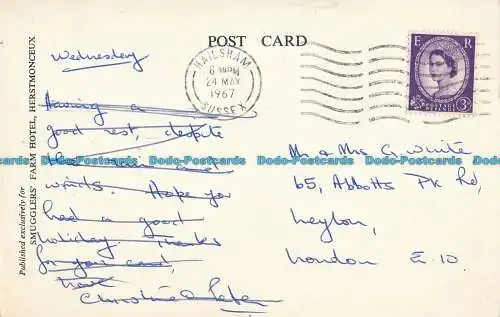 POST CARD
Wednesday
Having a
good rest, despite
the rain and
winds. Hope you
had a good
holiday. Thanks
for your card,
love
Christine & Peter
HAILSHAM
6 PM
24 MAY
1967
SUSSEX
E R
3D
Mr & Mrs G. White
65, Abbotts Pk Rd,
Leyton,
London E. 10
Published exclusively for
SMUGGLERS' FARM HOTEL, HERSTMONCEUX
Dodo-Postcards Dodo-Postcards Dodo-Postcards Dodo-Postcards Dodo-Postcards Dodo-Postcards Dodo-Postcards